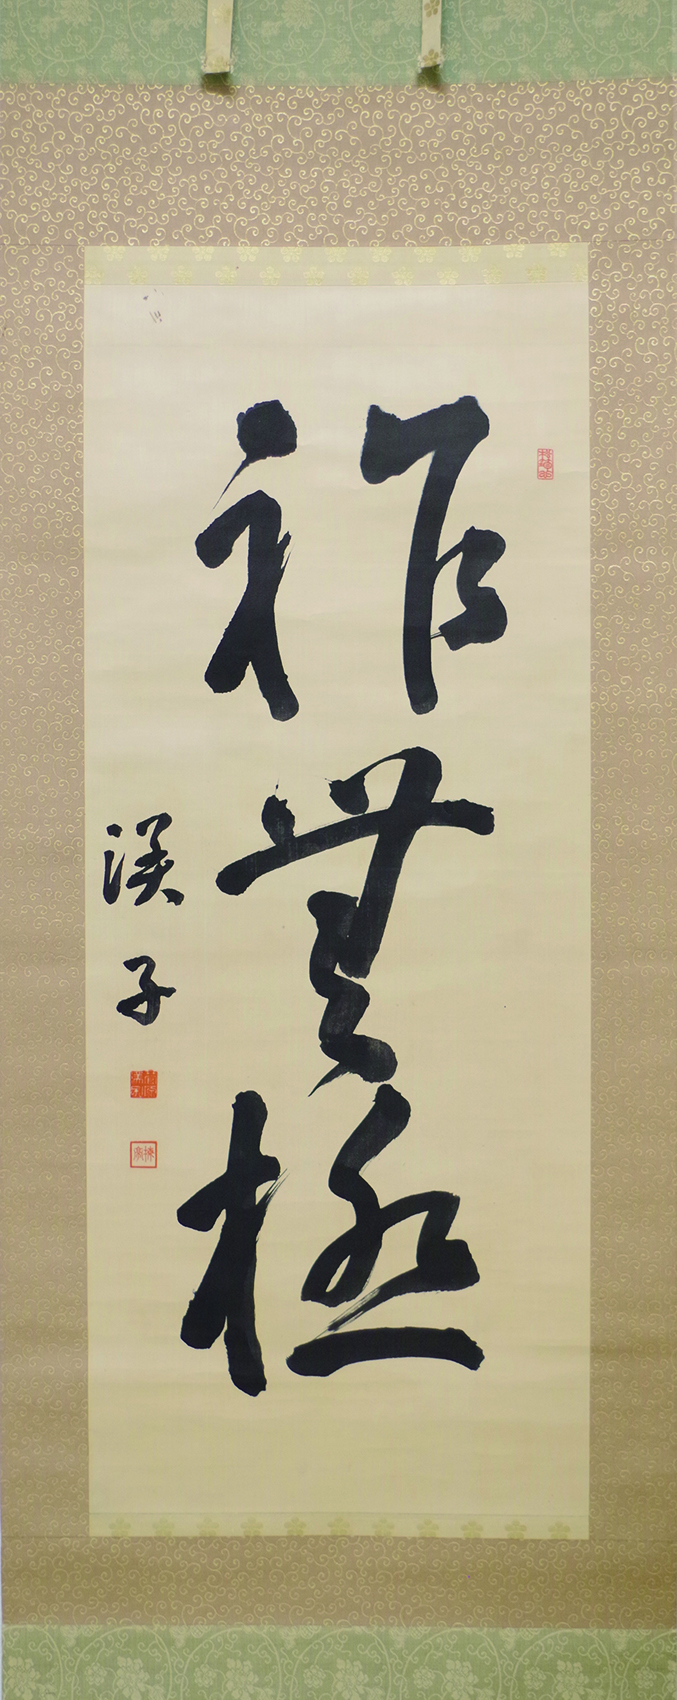 祚無極
渓子